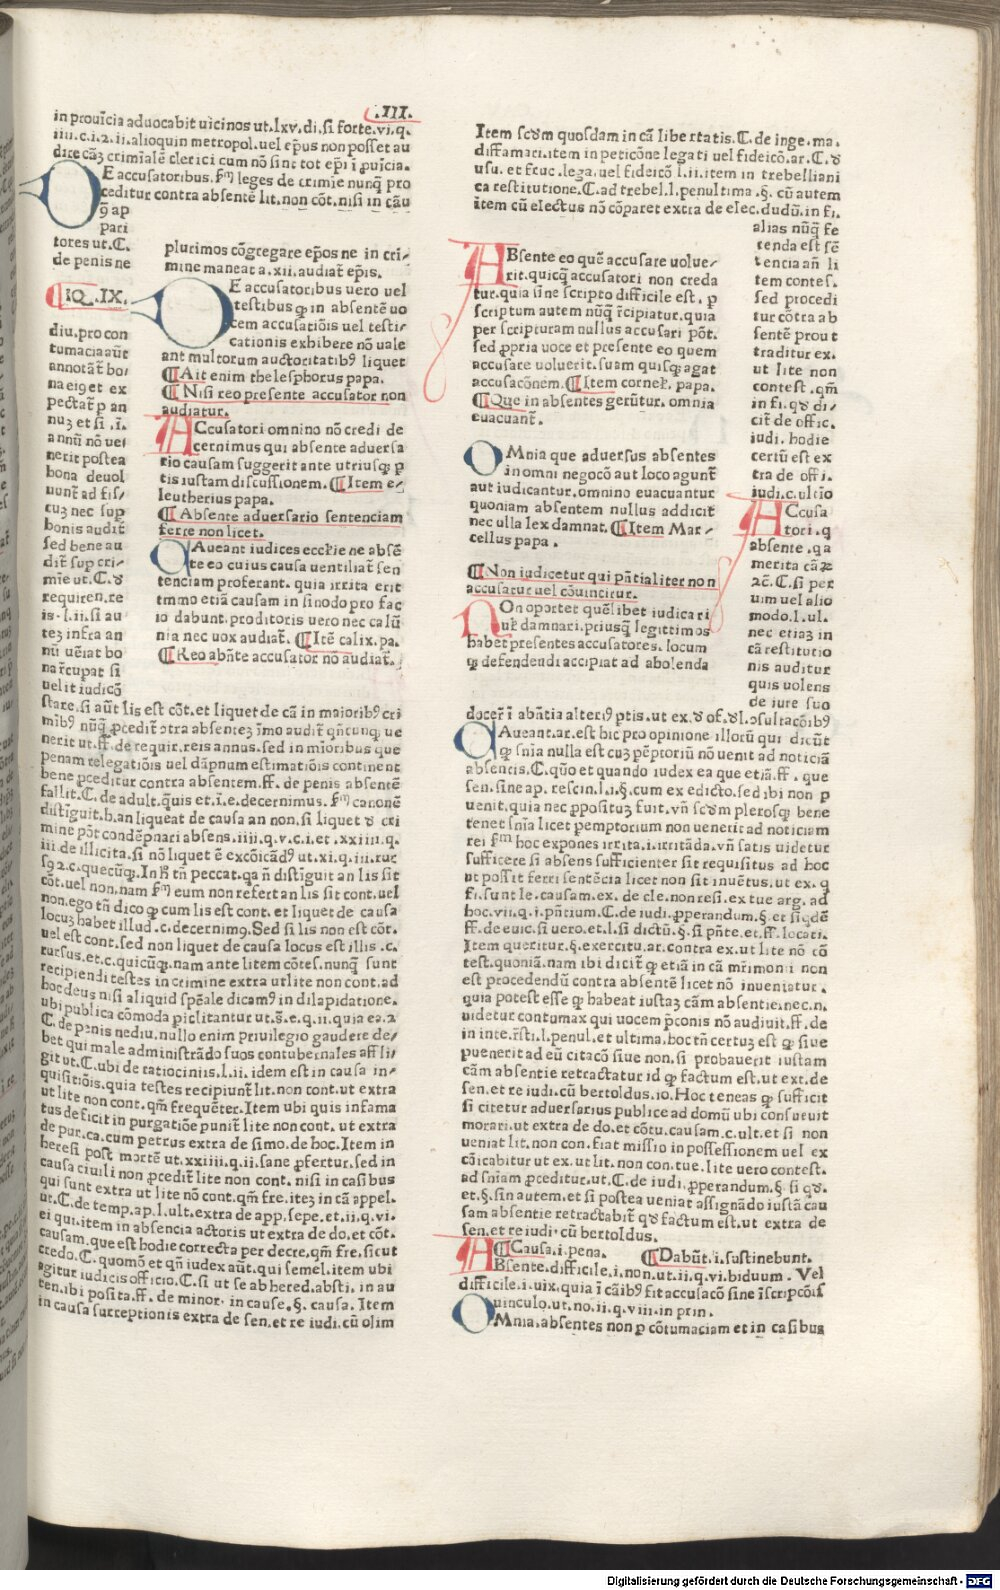 .III.
in prouīcia aduocabit uicinos ut.lxv.di.si forte.vi.q.
iiii.c.i.2.ii.alioquin metropol.uel ep̄us non posset au
dire cāʒ crimialē clerici cum nō sint tot ep̄i ī ꝓuīcia.
DE accusatoribus. leges de crimīe nunq̄ pro
ceditur contra absentē lit.non cōt.nisi in cāu
ap
pari
tores ut.C.
de penis ne
IQ.IX.
diu.pro con
tumacia aūt
annotāt bo
na ei et ex
pectat̄ p an
nuʒ et si .ī.
annū nō ue
nerit postea
bona deuol
uunt̄ ad fis
cuʒ nec sup
bonis audit̄
sed bene au
dit̄ sup cri
mīe ut.C.
requiren.re
is.l.ii.si au
teʒ infra an
nū ueīat bo
uel it iudicō
plurimos cōgregare ep̄os ne in cri
mine maneat a.xii.audiat̄ ep̄is.
DE accusatoribus uero uel
testibus in absentē uo
cem accusatiōis uel testi
cationis exhibere nō uale
ant multorum auctoritatibꝰ liquet
¶Ait enim thelesphorus papa.
¶Nisi reo presente accusator non
audiatur.
ACcusatori omnino nō credi de
cernimus qui absente aduersa
rio causam suggerit ante utriusqʒ ꝑ
tis iustam discussionem.¶Item e
leutherius papa.
¶Absente aduersario sentenciam
ferre non licet.
CAueant iudices ecclīe ne absē
te eo cuius causa uentiliat̄ sen
tenciam proferant.quia irrita erit
immo etiā causam in sinodo pro fac
to dabunt.proditoris uero nec calū
nia nec uox audiat̄.¶Itē calix.pa.
¶Reo abn̄te accusator nō audiat̄.
stare.si aūt lis est cōt.et liquet de cā in maioribꝰ cri
nerit ut.ff.de requir.reis annus.sed in mīoribus que
penam relegatiōis uel dāpnum estimatiōis continent
bene ꝓceditur contra absentem.ff.de penis absentē
fallit.C.de adult.quis et.ī.e.decernimus. canonē
distīguit.b.an liqueat de causa an non.si liquet cri
mine pōt condēpnari absens.iiii.q.v.c.i.et.xxiiii.q.
iii.de illicita.si nō liquet ē excōicādꝰ ut.xi.q.iii.rur
cōt.uel non.nam eum non refert an lis sit cont.uel
non.ego tn̄ dico cum lis est cont.et liquet de causa
locuʒ habet illud.c.decernimꝰ.Sed si lis non est cōt.
uel est cont.sed non liquet de causa locus est illis .c.
rursus.et.c.quicūqʒ.nam ante litem cōtes.nunq̄ sunt
recipiendi testes in crimine extra ut lite non cont.ad
hoc deus nisi aliquid sp̄eale dicamꝰ in dilapidatione.
ubi publica cōmoda piclitantur ut.s̄.e.q.ii.quia ea.2
C.de penis nediu.nullo enim priuilegio gaudere de
bet qui male administrādo suos contubernales affli
git ut.C.ubi de ratiociniis.l.ii.idem est in causa in
quisitiōis.quia testes recipiunt̄ lit.non cont.ut extra
ut lite non cont.qm̄ frequēter.Item ubi quis infama
tus deficit in purgatiōe punit̄ lite non cont.ut extra
de pur.ca.cum petrus extra de simo.de hoc.Item in
heresi post mortē ut.xxiiii.q.ii.sane ꝓfertur.sed in
causa ciuili non ꝓcedit̄ lite non cont.nisi in casibus
qui sunt extra ut lite nō cont.qm̄ fre.iteʒ in cā appel.
ut.C.de temp.ap.l.ult.extra de app.sepe.et.ii.q.vi.
ei qui.item in absencia actoris ut extra de do.et cōt.
causam.que est hodie correcta per decre.qm̄ fre.sicut
credo.C.quomō et qn̄ iudex aūt.qui semel.item ubi
agitur iudicis officio.C.si ut se ab hered.absti.in au
ten.ibi posita.ff.de minor.in cause.§.causa.Item
in causa surreptionis extra de sen.et re iudi.cū olim
Item scdm quosdam in cā libertatis.C.de inge.ma.
diffamari.item in peticōne legati uel fideicō.ar.C.
usu.et fruc.lega.uel fideicō l.ii.item in trebelliani
ca restitutione.C.ad trebel.l.penultima.§.cū autem
item cū electus nō cōparet extra de elec.dudū.in fi.
alias nūq̄ fe
renda est sē
tencia an̄ li
tem contes.
sed procedi
tur cōtra ab
sentē prout
traditur ex.
ut lite non
contest.qm̄
in fi. di
cit̄ de offic.
iudi.hodie
certū est ex
tra de offi.
iudi.c.ultīo
ABsente eo quē accusare uolue
rit.quicq̄ accusatori non creda
tur.quia sīne scripto difficile est. ꝑ
scriptum autem nūq̄ r̄cipiatur.quia
per scripturam nullus accusari pōt.
sed ꝓpria uoce et presente eo quem
accusare uoluerit.suam quisqʒ agat
accusacōnem.¶Item cornel̄. papa.
¶Que in absentes gerūtur.omnia
euacuant̄.
OMnia que aduersus absentes
in omni negocō aut loco agunt̄
aut iudicantur.omnino euacuantur
quoniam absentem nullus addicit
nec ulla lex damnat.¶Item Mar
cellus papa.
¶Non iudicetur qui pn̄tialiter non
accusatur uel cōuincitur.
NOn oportet quēlibet iudicari
uel̄ damnari.priusq̄ legittimos
habet presentes accusatores.locum
defendendi accipiat ad abolenda
ACcusa
tori.q
absente.qa
merita cāꝝ
2c̄.C.si per
uim uel alio
modo.l.ul.
nec etiaʒ in
cā restitutio
nis auditur
quis uolens
de iure suo
CAueant.ar.est hic pro opinione illorū qui dicūt
snīa nulla est cuʒ pēptoriū nō uenit ad noticiā
absentis.C.quō et quando iudex ea que etiā.ff. que
sen.sine ap.rescin.l.i.§.cum ex edicto.sed ibi non ꝑ
uenit.quia nec ꝓpositus fuit.vn̄ scdm plerosqʒ bene
tenet snīa licet pemptorium non uenerit ad noticiam
rei hoc expones irrita.i.irritāda.vn̄ satis uidetur
sufficere si absens sufficienter sit requisitus ad hoc
ut possit ferri sentēcia licet non sit inuētus.ut ex.
fi.sunt le.causam.ex. de cle.non resi.ex tue arg.ad
hoc.vii.q.i.pn̄tium.C.de iudi.ꝓperandum.§.et siqdē
ff.de euic.si uero.et.l.si dictū.§.si pn̄te.et.ff.locati.
Item queritur.§.exercitu.ar.contra ex.ut lite nō cō
test.quoniā.nam ibi dicit̄ etiā in cā mr̄imonii non
est procedendū contra absentē licet nō inueniatur.
quia potest esse habeat iustaʒ cām absentie.nec.n.
uidetur contumax qui uocem p̄conis nō audiuit.ff.de
in inte.r̄sti.l.penul.et ultima.hoc tn̄ certuʒ est siue
puenerit ad eū citacō siue non.si probauerit iustam
cām absentie retractatur id factum est.ut ext.de
sen.et re iudi.cū bertoldus.io.Hoc teneas sufficit
si citetur aduersarius publice ad domū ubi consueuit
morari.ut extra de do.et cōtu.causam.c.ult.et si non
ueniat lit.non con.fiat missio in possessionem uel ex
cōicabitur ut ex.ut lit.non con.tue.lite uero contest.
ad snīam ꝓceditur.ut.C.de iudi.ꝓperandum.§.si
et.§.sin autem.et si postea ueniat assignādo iustā cau
sam absentie retractabit̄ factum est.ut extra de
sen.et re iudi.cū bertoldus.
¶Causa.i.pena. ¶Dabūt.i.sustinebunt.
ABsente.difficile.i.non.ut.ii.q.vi.biduum. Vel
difficile.i.uix.quia ī cāibꝰ fit accusacō sine īscripcōis
uinculo.ut.no.ii.q.viii.in prin.
OMnia.absentes non ꝑ cōtumaciam et in casibus
Digitalisierung gefördert durch die Deutsche Forschungsgemeinschaft - DFG